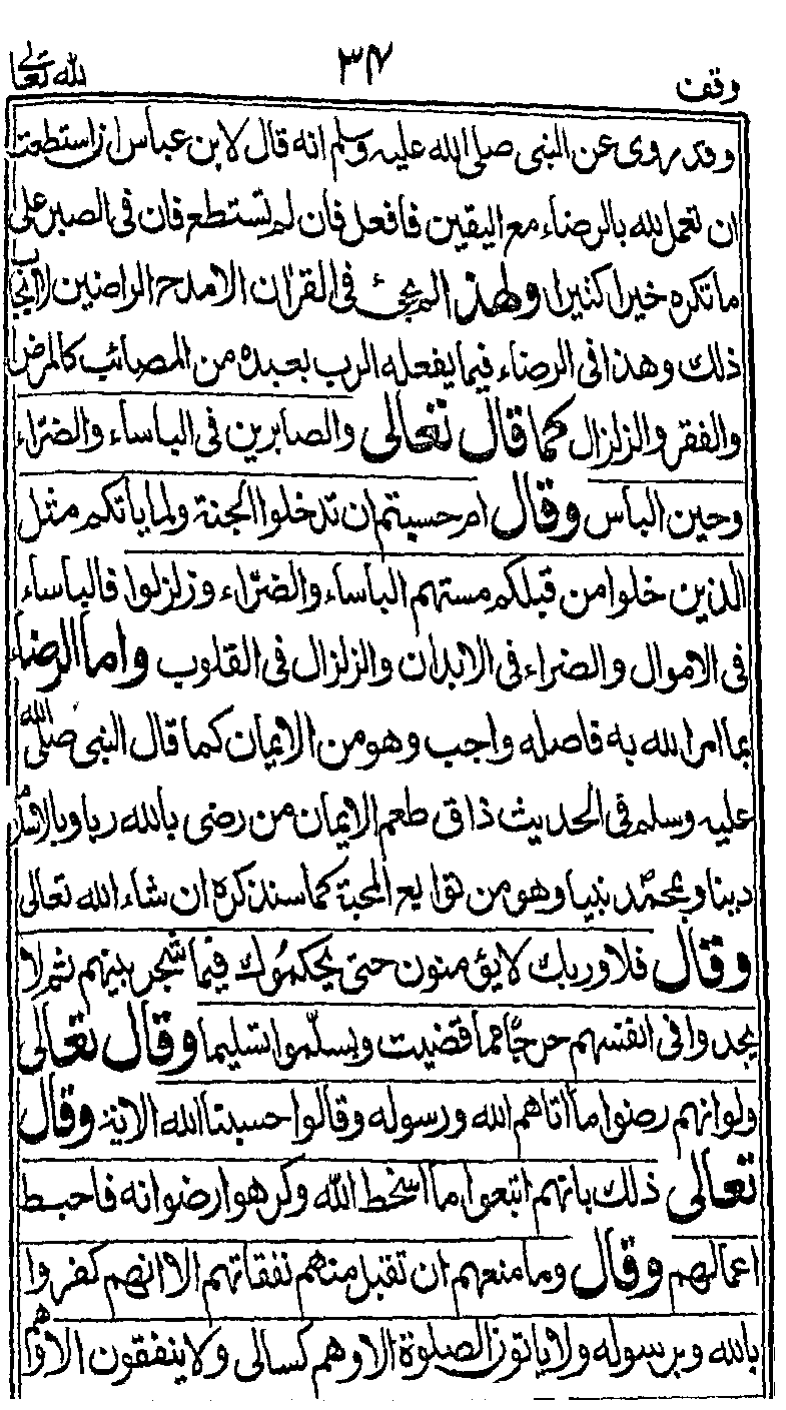 وقف ٣٧ لله تعالى
وقد روى عن النبى صلى الله عليه وسلم انه قال لابن عباس ان استطعت
ان تعمل لله بالرضاء مع اليقين فافعل فان لم تستطع فان فى الصبر على
ما تكره خيرا كثيرا ولهذا لم يجئ فى القرآن الا مدح الراضين لا ايجاب
ذلك وهذا فى الرضاء فيما يفعله الرب بعبده من المصائب كالمرض
والفقر والزلزال كما قال تعالى والصابرين فى الباساء والضراء
وحين الباس وقال ام حسبتم ان تدخلوا الجنة ولما ياتكم مثل
الذين خلوا من قبلكم مستهم الباساء والضراء وزلزلوا فالباساء
فى الاموال والضراء فى الابدان والزلزال فى القلوب واما الرضاء
بما امر الله به فاصله واجب وهو من الايمان كما قال النبى صلى الله
عليه وسلم فى الحديث ذاق طعم الايمان من رضى بالله ربا وبالاسلام
دينا وبمحمد نبيا وهو من توابع المحبة كما سنذكره ان شاء الله تعالى
وقال فلا وربك لا يؤمنون حتى يحكموك فيما شجر بينهم ثم لا
يجدوا فى انفسهم حرجا مما قضيت ويسلموا تسليما وقال تعالى
ولو انهم رضوا ما آتاهم الله ورسوله وقالوا حسبنا الله الاية وقال
تعالى ذلك بانهم اتبعوا ما اسخط الله وكرهوا رضوانه فاحبط
اعمالهم وقال وما منعهم ان تقبل منهم نفقاتهم الا انهم كفروا
بالله وبرسوله ولا ياتون الصلوة الا وهم كسالى ولا ينفقون الا وهم